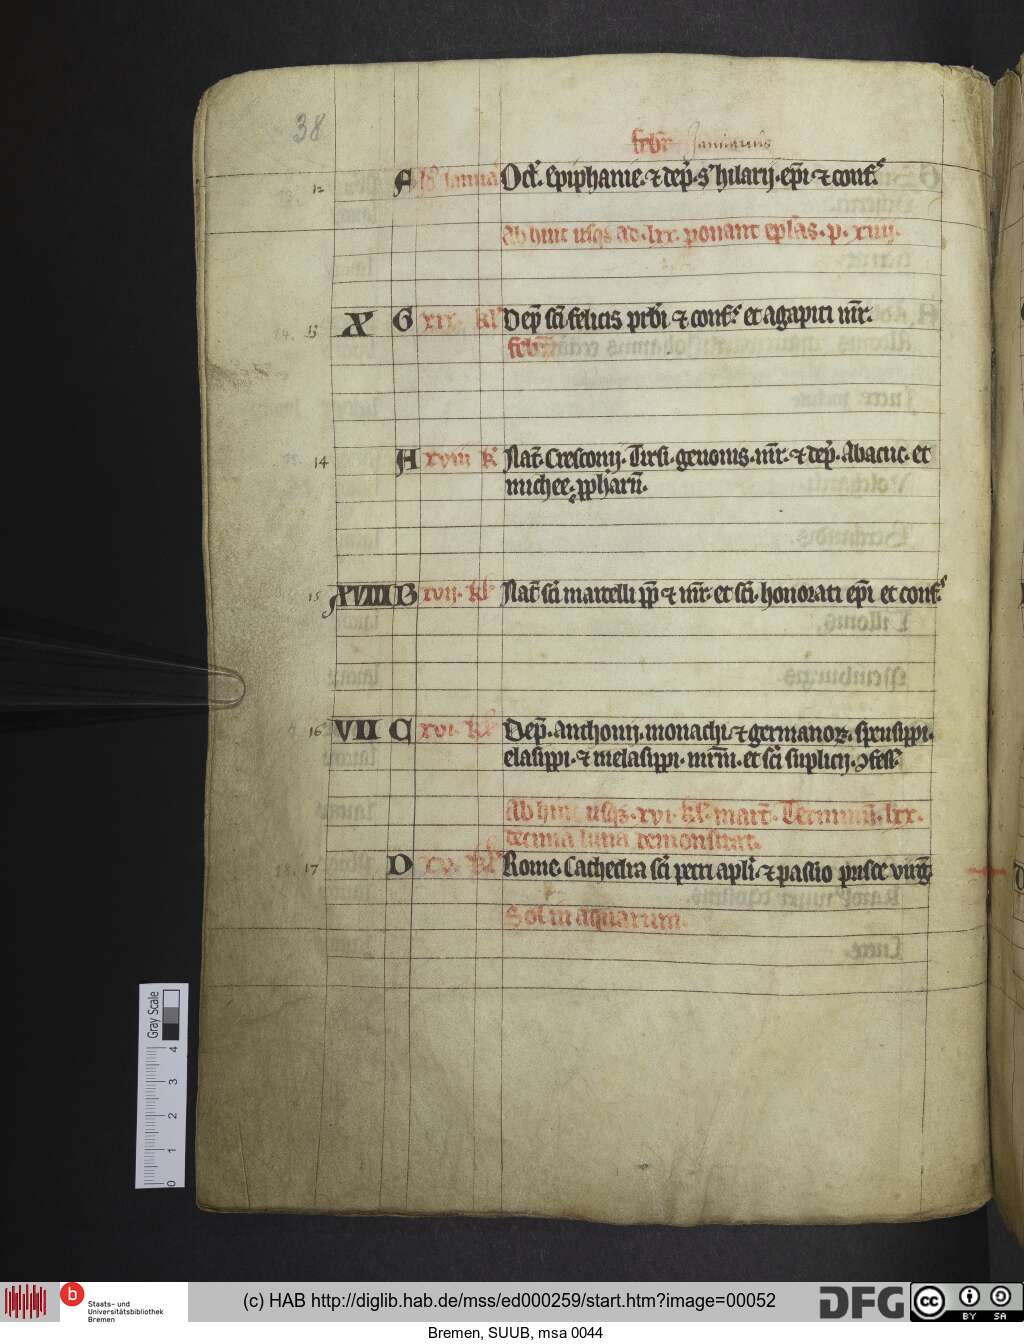 38
febr Januarius
12 F Id' Janua Oct̄. Epiphanie. ⁊ dep̄. s' hilarij. ep̄i ⁊ conf.
Ab hinc usq; ad. lxx. ponant epl̄as. p. xiiij.
13 X G xix kl' Dep̄ sc̄i felicis pr̄bi ⁊ conf. et agapiti mr̄.
febr
14 A xviii k' Nat̄. Cresconij. Tirsi. genonis. mr̄. ⁊ dep̄. Abacuc. et
michee. ꝓph̄arū.
15 XVIII B xvii. kl' Nat̄ sc̄i marcelli pp̄ ⁊ mr̄. et sc̄i. honorati ep̄i et conf.
16 VII C xvi. kl' Dep̄. anthonij. monachi. ⁊ germanoꝝ. speusippi.
elasippi. ⁊ melasippi. mr̄m̄. et sc̄i suplicij. ꝯfess'
Ab hinc usq;. xvi. kl'. mart̄. Terminū. lxx.
decima luna demonstrat.
17 D xv. kl' Rome. Cathedra sc̄i petri apl̄i. ⁊ passio prisce virḡ
Sol in aquarium.
Gray Scale
4
3
2
1
0
b
Staats- und
Universitätsbibliothek
Bremen
(c) HAB http://diglib.hab.de/mss/ed000259/start.htm?image=00052
DFG
cc BY SA
Bremen, SUUB, msa 0044